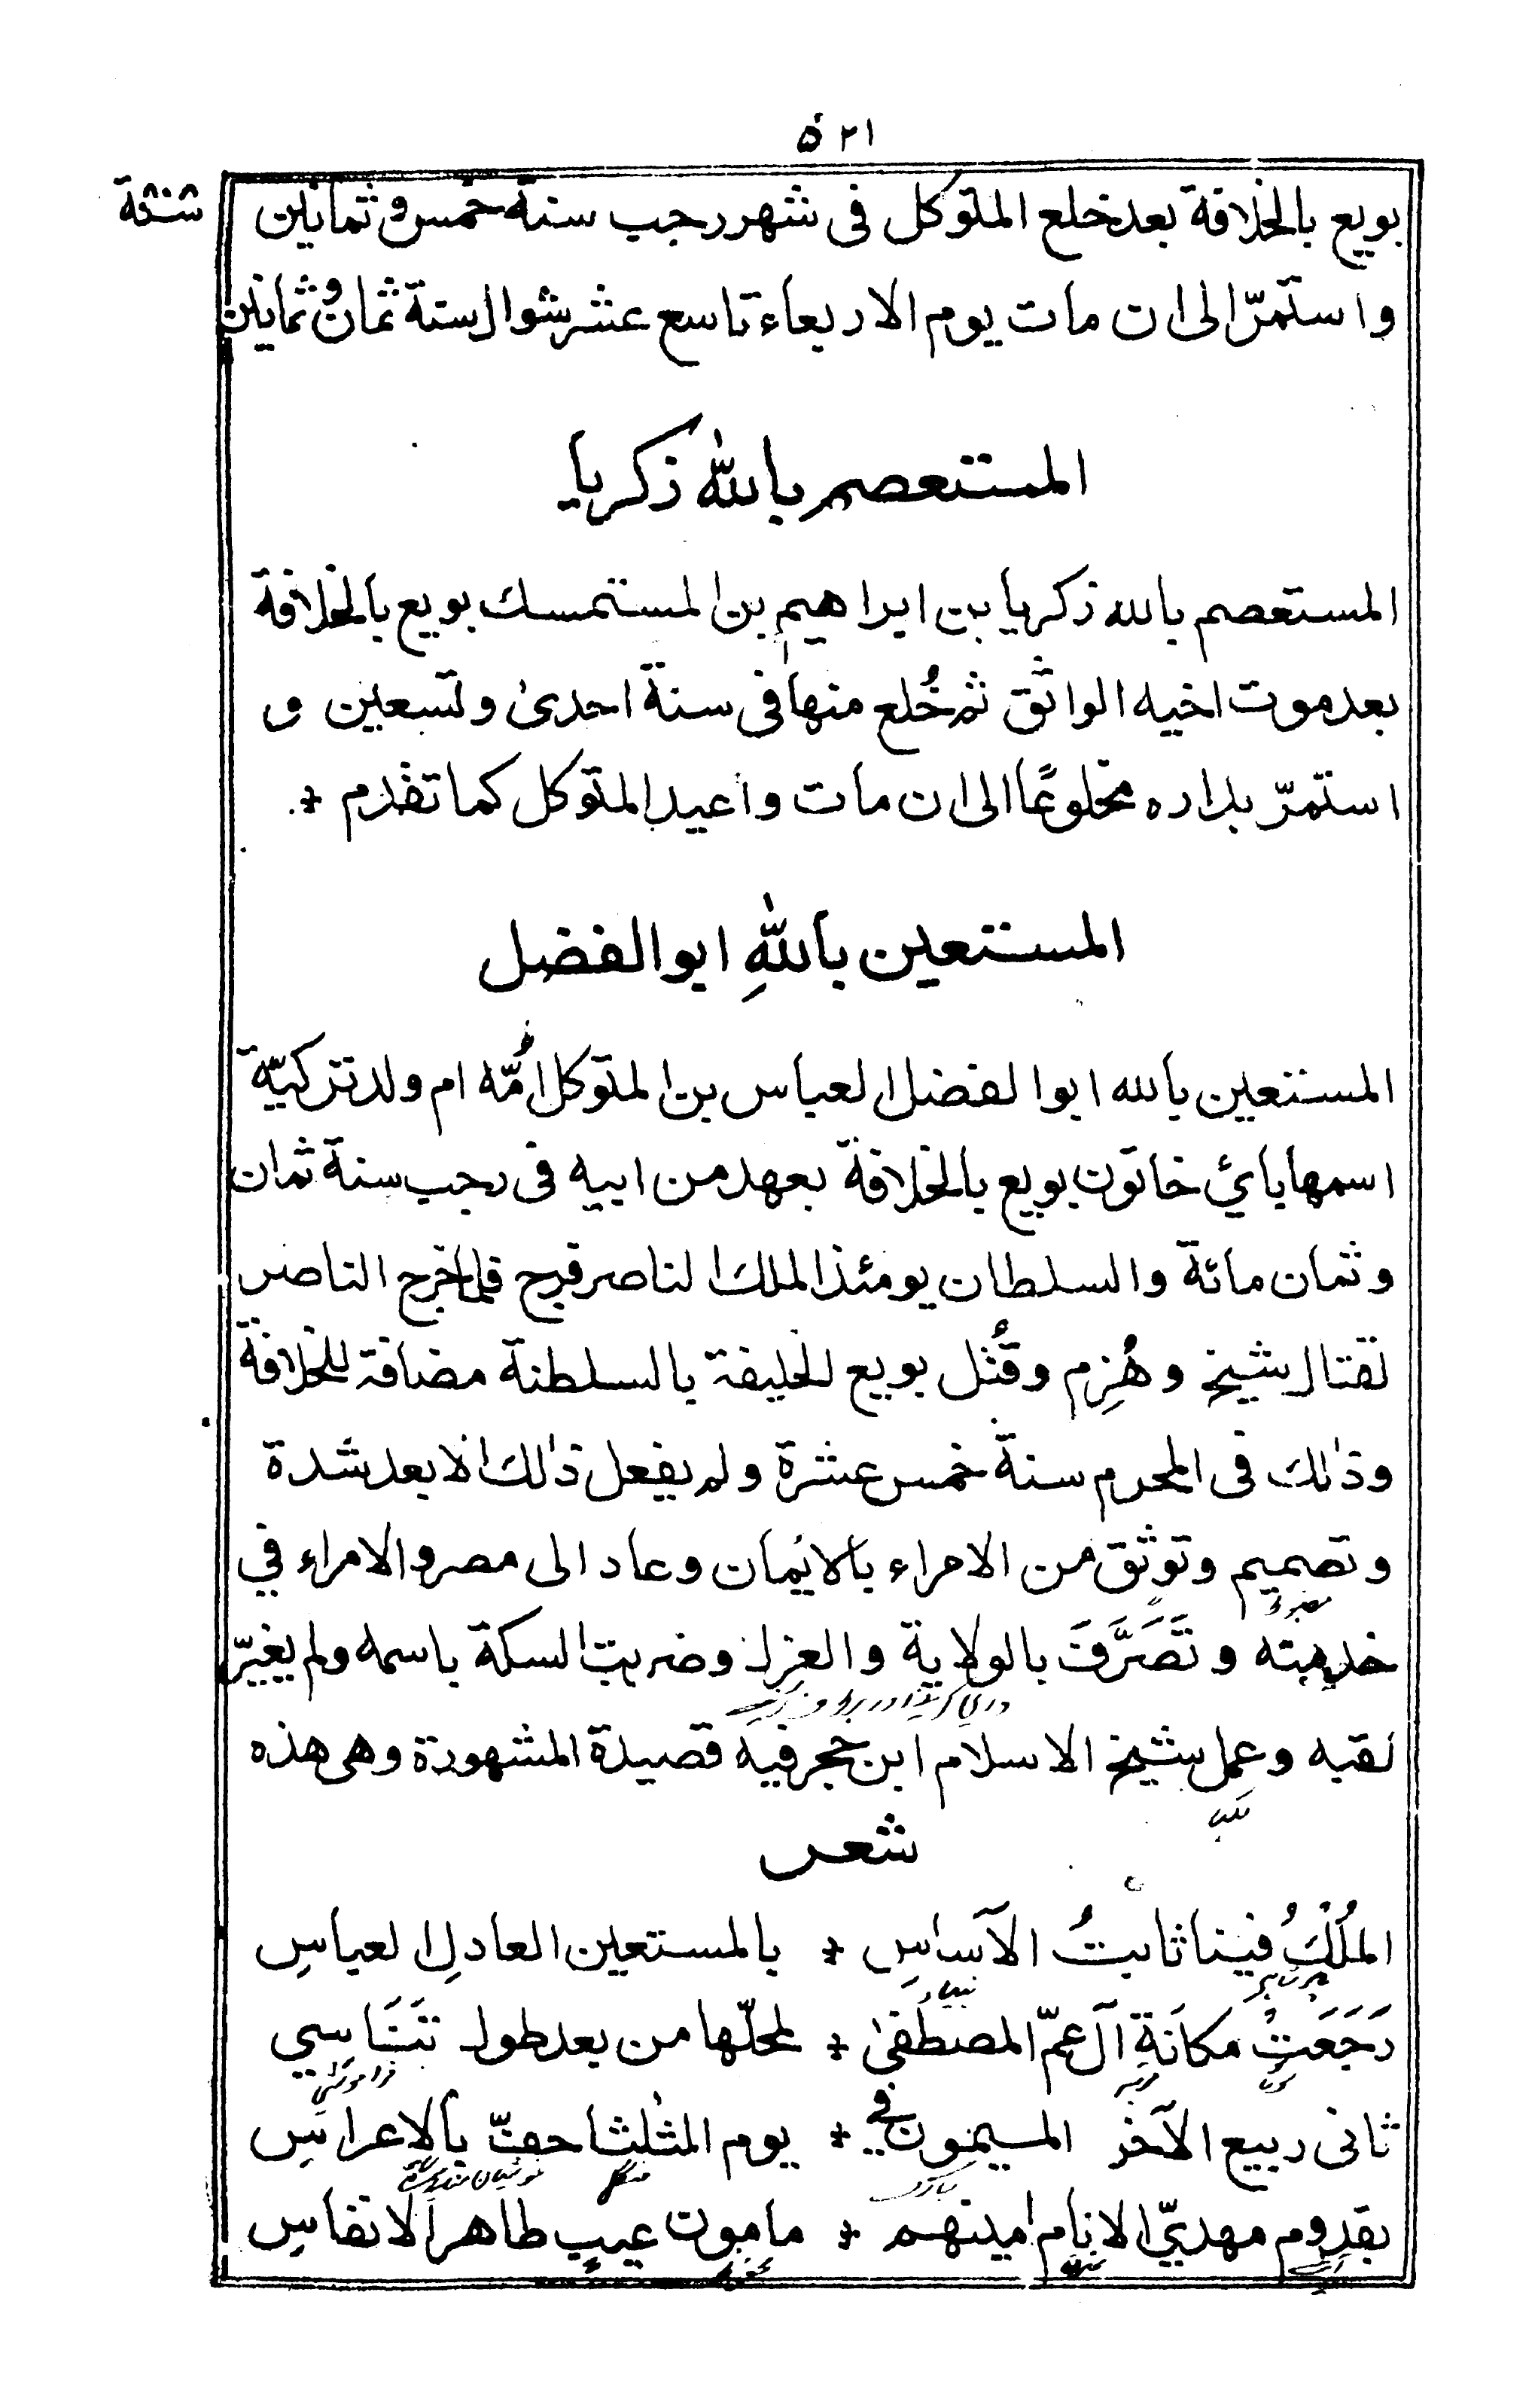 ٥٢١
بويع بالخلافة بعد خلع المتوكل فى شهر رجب سنة خمس و ثمانين
واستمرّ الى ان مات يوم الاربعاء تاسع عشر شوال ستة ثمان و ثمانين
المستعصم بالله زكريا
المستعصم بالله زكريا بن ابراهيم بن المستمسك بويع بالخلافة
بعد موت اخيه الواثق ثم خُلع منها فى سنة احدىٰ وتسعين و
استمرّ بداره مخلوعًا الى ان مات واعيد المتوكل كما تقدم +
المستعين باللهِ ابو الفضل
المستعين بالله ابو الفضل العباس بن المتوكل اُمّه ام ولد تركيّة
اسمها بائ خاتون بويع بالخلافة بعهد من ابيه فى رجب سنة ثمان
وثمان مائة والسلطان يومئذ الملك الناصر فرج فلما خرج الناصر
لقتال شيخ وهُزِم وقُتل بويع الخليفة بالسلطنة مضافة للخلافة
وذٰلك فى المحرم سنة خمس عشرة ولم يفعل ذٰلك الا بعد شدة
وتصميم وتوثق من الامراء بالايمان وعاد الى مصر والامراء في
خدمته وتَصَرَّفَ بالولاية والعزل وضربت السكة باسمه ولم يغيّر
لقبه وعمل شيخ الاسلام ابن حجر فيه قصيدة المشهورة وهى هذه
شعر
المُلْكُ فينا ثابتُ الآساسِ + بالمستعين العادلِ العباسِ
رَجَعَتْ مكانَةِ آل عمّ المصطفىٰ + لمحلّها من بعد طول تَنَاسِي
ثانى ربيع الآخر الميمون في + يوم الثلثا حفتّ بالاعراسِ
بقدوم مهديّ الانام امينهم + مامون عيبٍ طاهر الانفاسِ